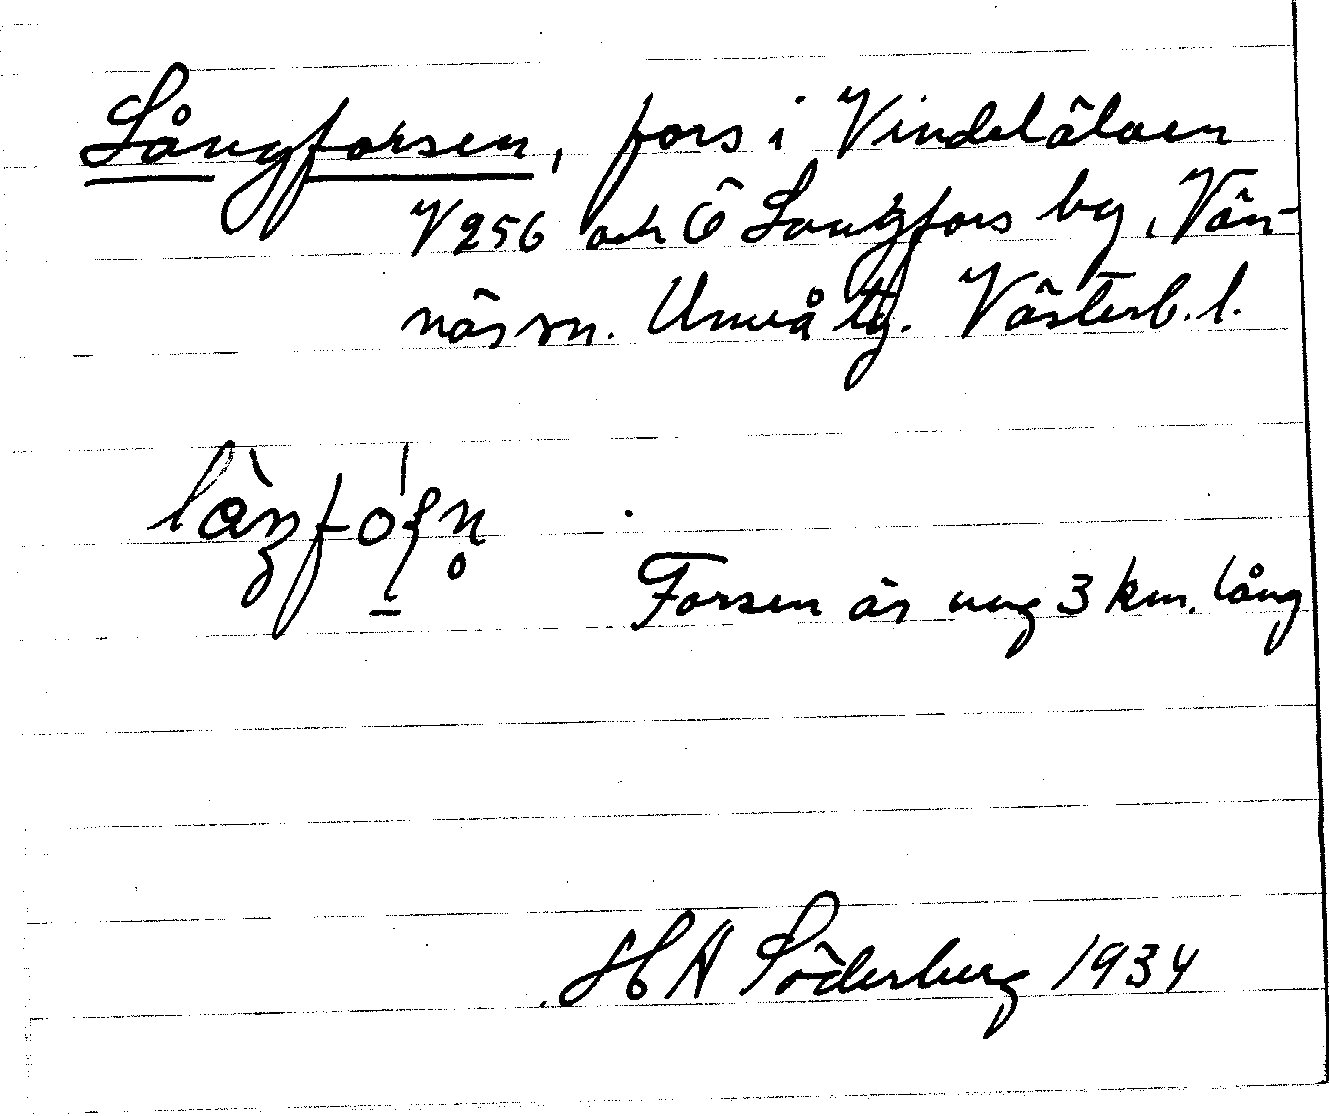 Långforsen, fors i Vindelälven
V 256 och Ö Långfors by, Vän-
näs sn. Umeå tg. Västerb. l.
Forsen är ung 3 km. lång
H A Söderberg 1934